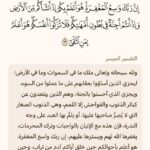 إِنَّ رَبَّكَ وَاسِعُ الْمَغْفِرَةِ هُوَ أَعْلَمُ بِكُمْ إِذْ أَنشَأَكُم مِّنَ الْأَرْضِ
وَإِذْ أَنتُمْ أَجِنَّةٌ فِي بُطُونِ أُمَّهَاتِكُمْ فَلَا تُزَكُّوا أَنفُسَكُمْ هُوَ أَعْلَمُ
بِمَنِ اتَّقَى
التفسير الميسر
ولله سبحانه وتعالى ملك ما في السموات وما في الأرض؛
ليجزي الذين أساءوا بعقابهم على ما عملوا من السوء،
ويجزي الذين أحسنوا بالجنة، وهم الذين يبتعدون عن
كبائر الذنوب والفواحش إلا اللمم، وهي الذنوب الصغار
التي لا يُصِرُّ صاحبها عليها، أو يلمُّ بها العبد على وجه
الندرة، فإن هذه مع الإتيان بالواجبات وترك المحرمات،
يغفرها الله لهم ويسترها عليهم، إن ربك واسع المغفرة،
هو أعلم بأحوالكم حين خلق أباكم آدم من تراب، وحين